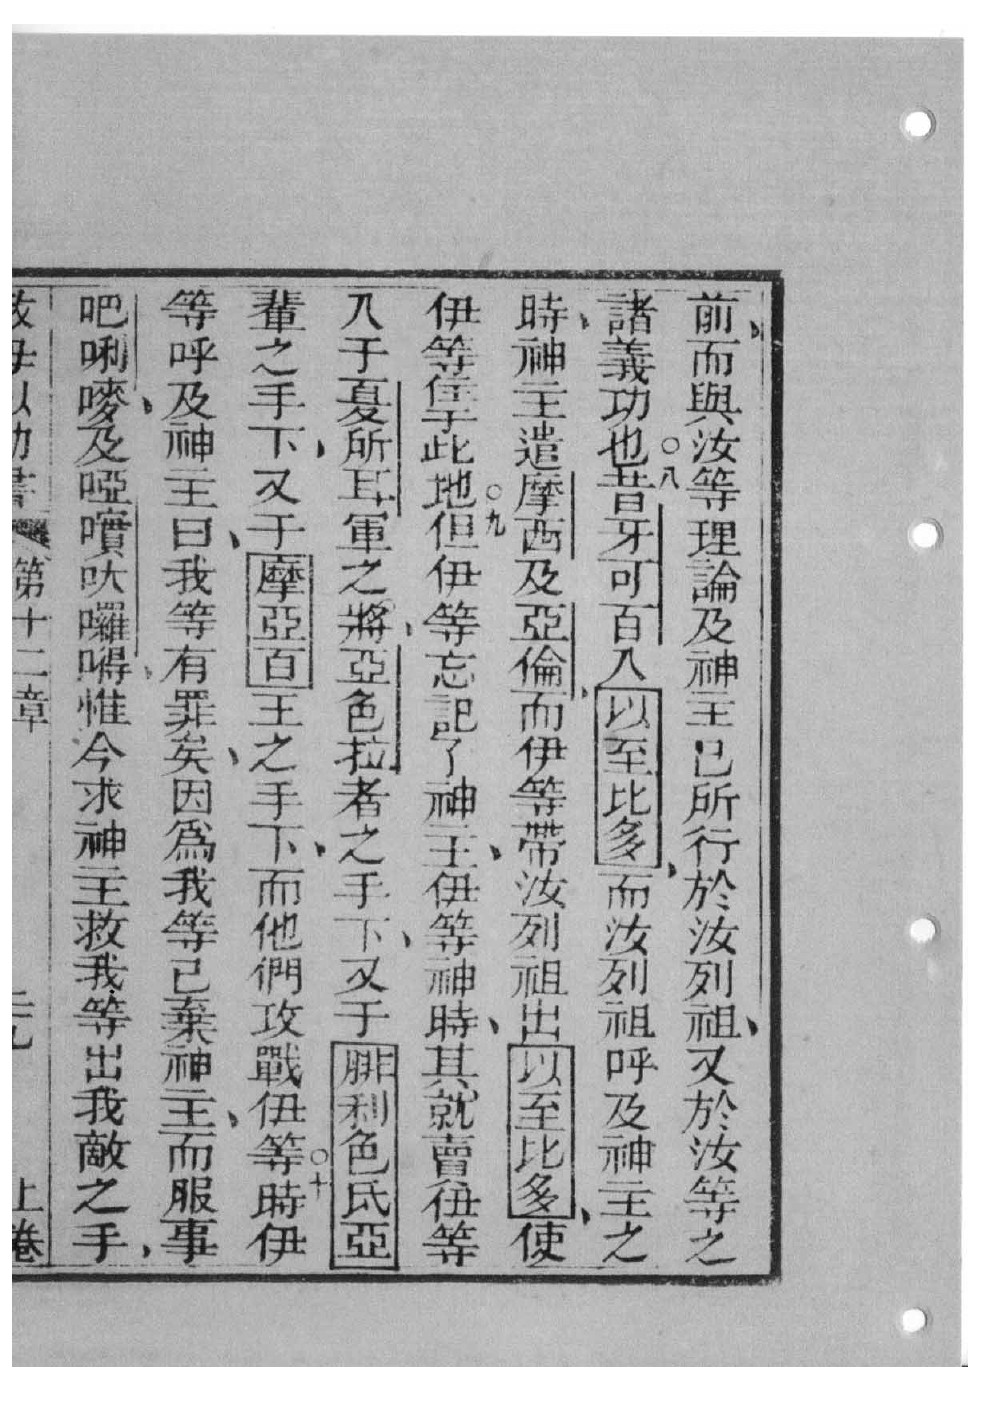 前而與汝等理論及神主已所行於汝列祖、又於汝等之
諸義功也○八昔牙可百入以至比多、而汝列祖呼及神主之
時、神主遣摩西及亞倫、而伊等帶汝列祖出以至比多、使
伊等住于此地○九但伊等忘記了神主、伊等神時、其就賣伊等
入于戛所耳軍之將、亞色拉者之手下、又于腓利色氏亞
輩之手下、又于摩亞百王之手下、而他們攻戰伊等○十時伊
等呼及神主曰、我等有罪矣、因為我等已棄神主、而服事
吧唎嘜、及啞嚝呔囉嘚、惟今求神主救我等出我敵之手、
第十二章 上卷